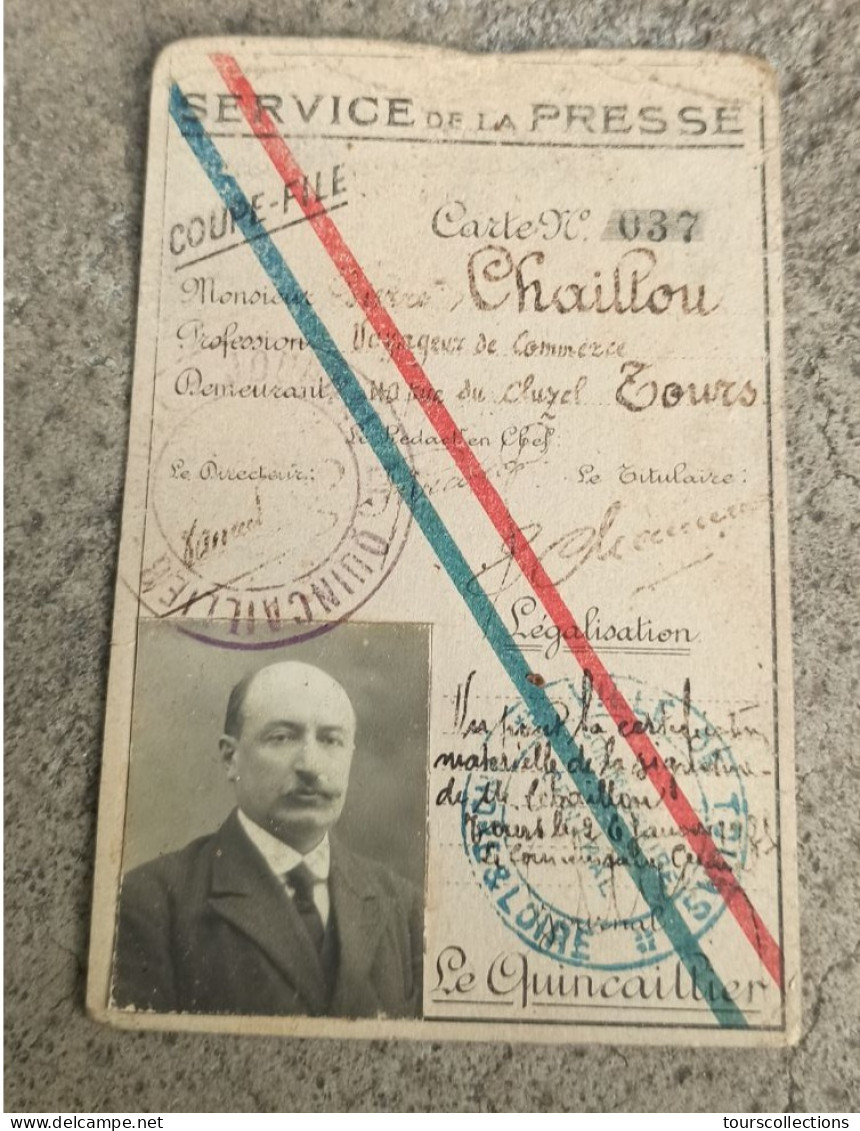 SERVICE DE LA PRESSE
COUPE-FILE
Carte No. 037
Monsieur Pierre Chaillou
Profession Voyageur de Commerce
Demeurant rue du Cluzel Tours
Le Rédact. en Chef
Le Directeur: Le Titulaire:
QUINCAILLIER
Légalisation
Vu pour la certification
matérielle de la signature
de M. Chaillou
Tours le 26 Janvier
Le Commissaire
VILLE DE TOURS
& LOIRE
Le Quincaillier
delcampe.net
tourscollections